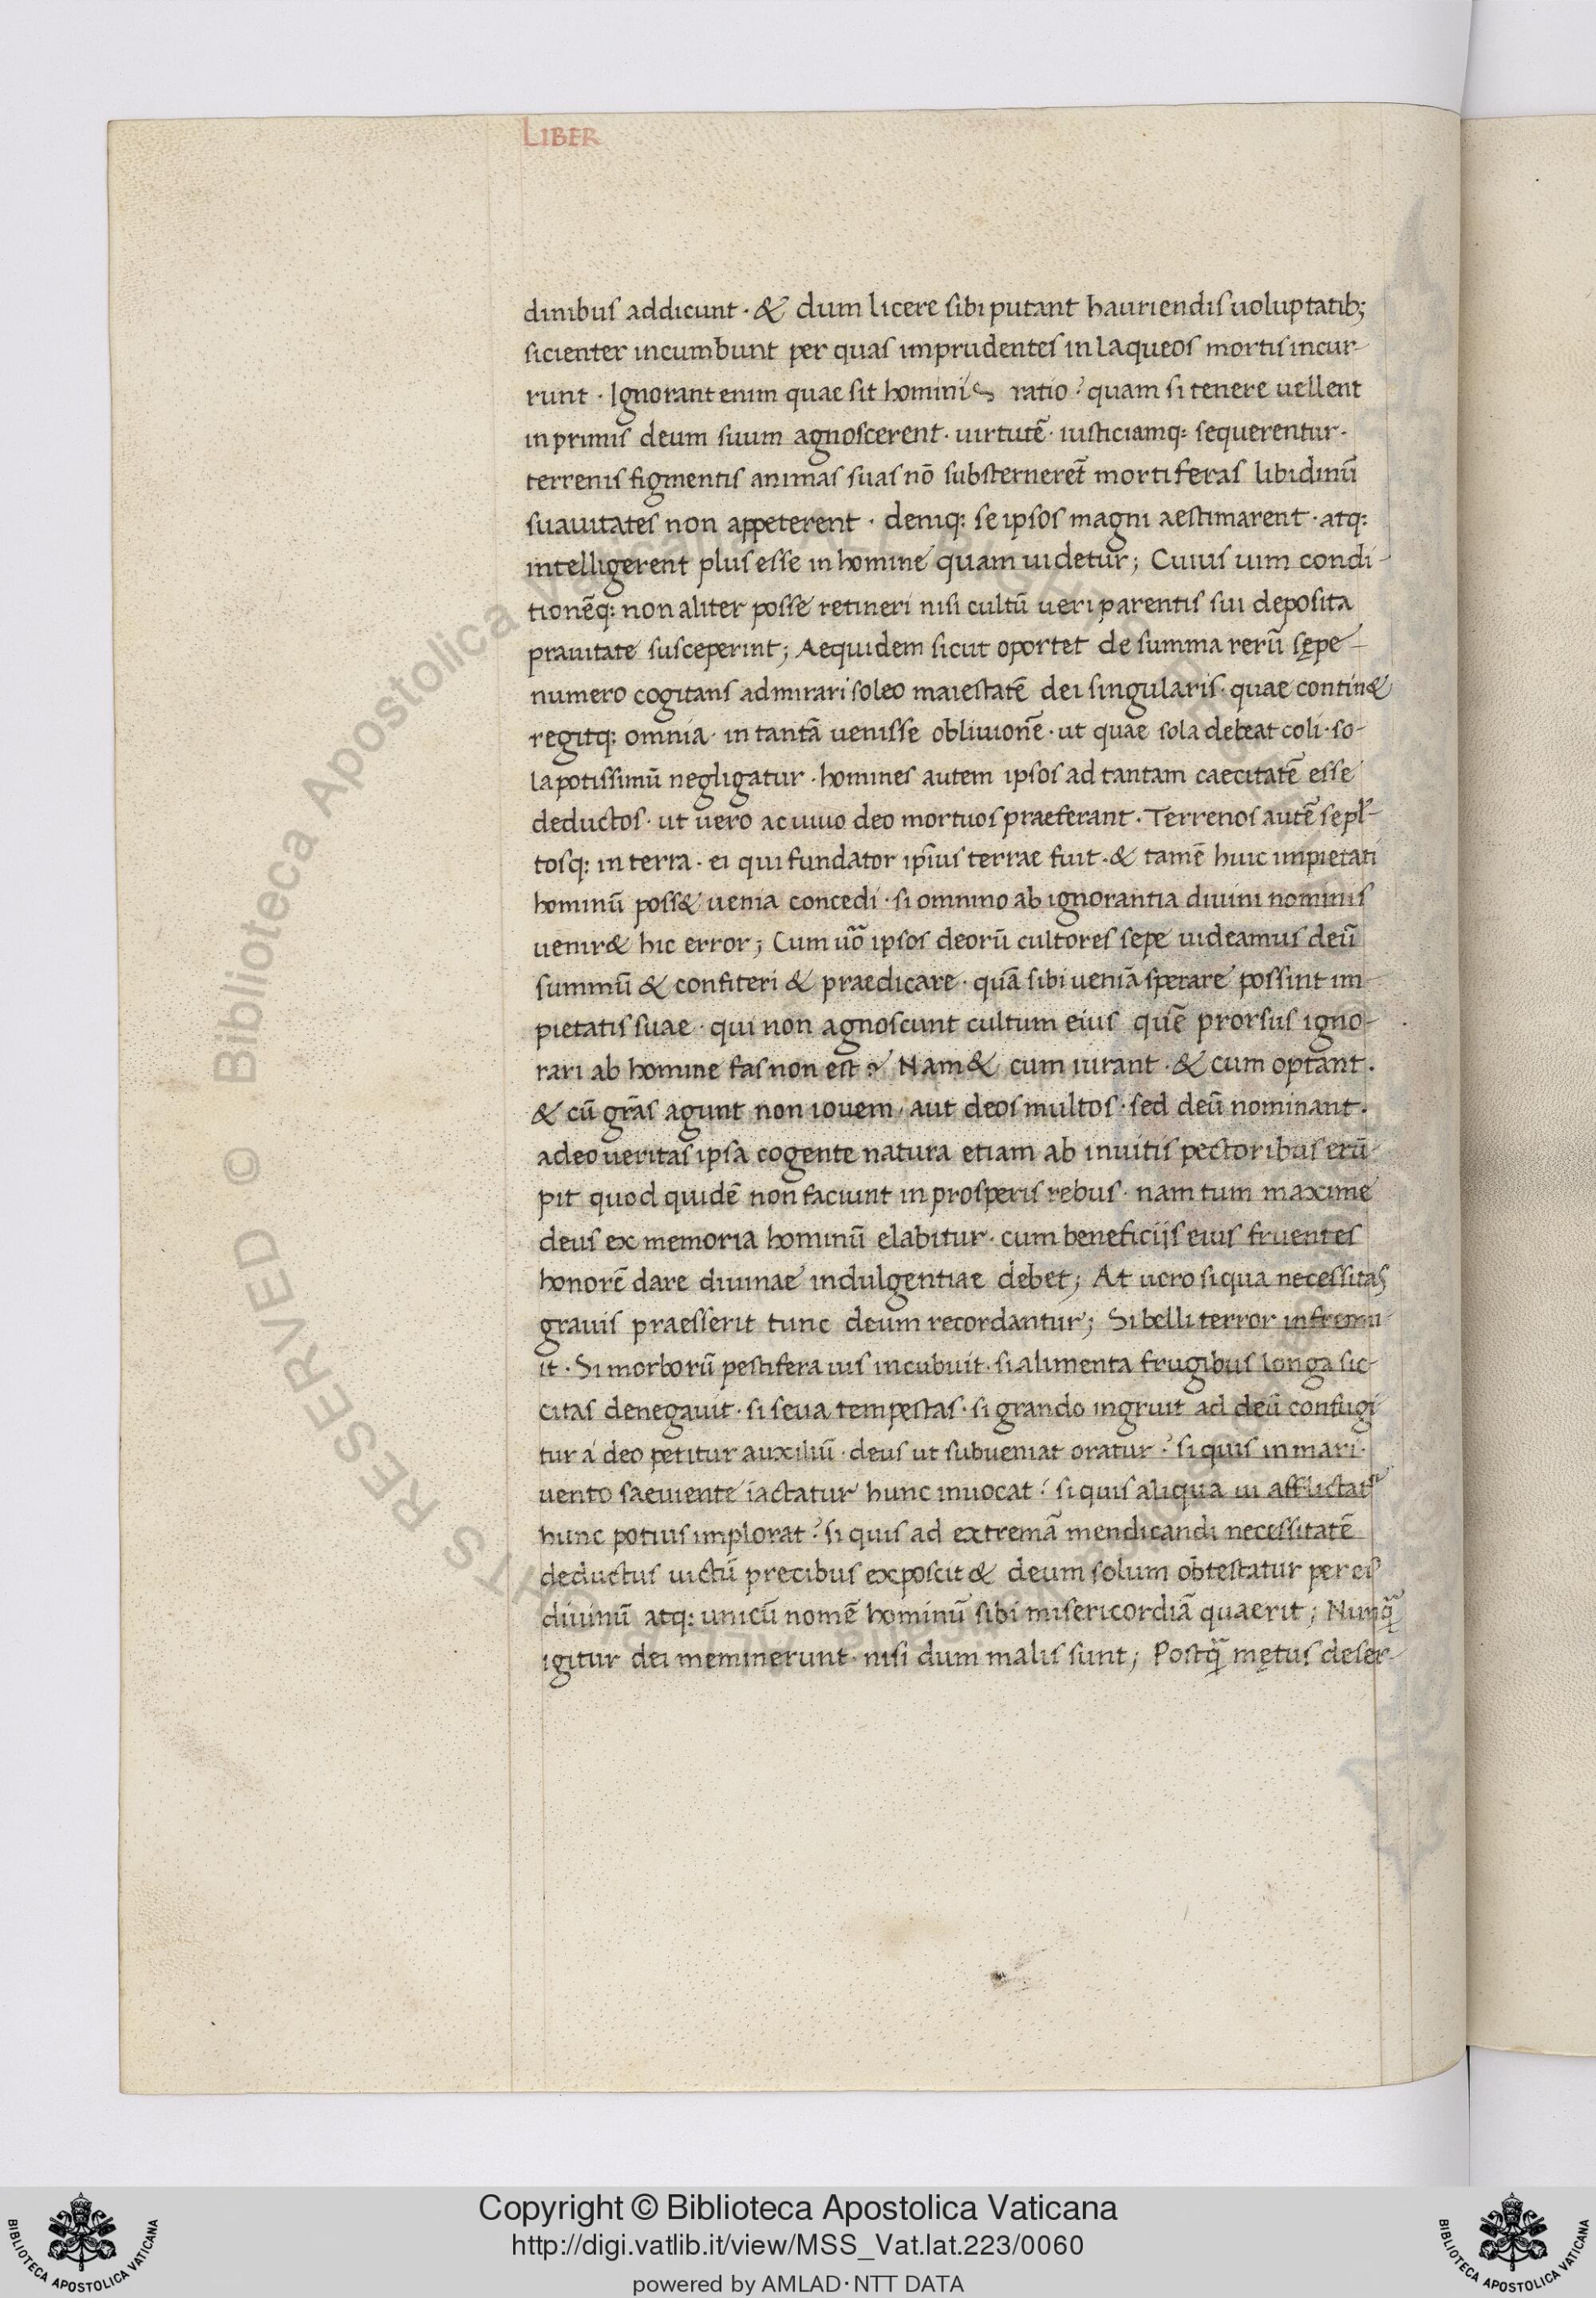 LIBER
dinibus addicunt · & dum licere sibi putant hauriendis uoluptatib;
sicienter incumbunt per quas imprudentes in laqueos mortis incur-
runt · Ignorant enim quae sit hominis ratio? quam si tenere uellent
in primis deum suum agnoscerent · uirtutē · iusticiamq: sequerentur ·
terrenis figmentis animas suas nō substernerēt mortiferas libidinū
suauitates non appeterent · deniq: se ipsos magni aestimarent · atq:
intelligerent plus esse in homine quam uidetur; Cuius uim condi-
tionēq: non aliter posse retineri nisi cultū ueri parentis sui deposita
prauitate susceperint; Aequidem sicut oportet de summa rerū sępe-
numero cogitans admirari soleo maiestatē dei singularis · quae contin&
regitq: omnia · in tantā uenisse obliuionē · ut quae sola debeat coli · so-
la potissimū negligatur · homines autem ipsos ad tantam caecitatē esse
deductos · ut uero ac uiuo deo mortuos praeferant · Terrenos autē sepl̄-
tosq: in terra · ei qui fundator ip̄ius terrae fuit · & tamē huic impietati
hominū poss& uenia concedi · si omnino ab ignorantia diuini nominis
uenir& hic error; Cum uō ipsos deorū cultores sepe uideamus deū
summū & confiteri & praedicare · quā sibi ueniā sperare possint im-
pietatis suae · qui non agnoscunt cultum eius quē prorsus igno-
rari ab homine fas non est? Nam & cum iurant · & cum optant ·
& cū grās agunt non iouem · aut deos multos · sed deū nominant ·
adeo ueritas ipsa cogente natura etiam ab inuitis pectoribus erū-
pit quod quidē non faciunt in prosperis rebus · nam tum maxime
deus ex memoria hominū elabitur · cum beneficijs eius fruentes
honorē dare diuinae indulgentiae debet; At uero siqua necessitas
grauis praesserit tunc deum recordantur; Si belli terror infremu-
it · Si morborū pestifera uis incubuit · si alimenta frugibus longa sic-
citas denegauit · si seua tempestas · si grando ingruit ad deū confugi
tur a deo petitur auxiliū · deus ut subueniat oratur? si quis in mari ·
uento saeuiente iactatur hunc inuocat? si quis aliqua ui afflictat̄
hunc potius implorat? si quis ad extremā mendicandi necessitatē
deductus uictū precibus exposcit & deum solum obtestatur per eis
diuinū atq: unicū nomē hominū sibi misericordiā quaerit; Nunq̄
igitur dei meminerunt · nisi dum malis sunt; Postq̄ mętus deser-
© Biblioteca Apostolica Vaticana
Copyright © Biblioteca Apostolica Vaticana
http://digi.vatlib.it/view/MSS_Vat.lat.223/0060
powered by AMLAD·NTT DATA
BIBLIOTECA APOSTOLICA VATICANA
BIBLIOTECA APOSTOLICA VATICANA